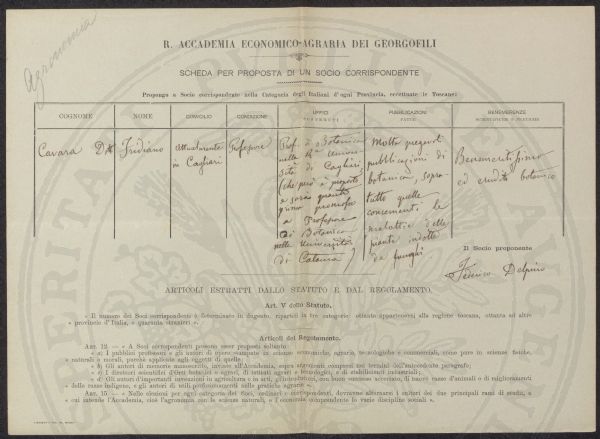 Agronomia
R. ACCADEMIA ECONOMICO-AGRARIA DEI GEORGOFILI
SCHEDA PER PROPOSTA DI UN SOCIO CORRISPONDENTE
Propongo a Socio corrispondente nella Categoria degli Italiani d'ogni Provincia, eccettuate le Toscane:
COGNOME NOME DOMICILIO CONDIZIONE UFFICI SOSTENUTI PUBBLICAZIONI FATTE BENEMERENZE SCIENTIFICHE O PRATICHE
Cavara Dr
Fridiano
Attualmente
in Cagliari
Professore
Prof. di Botanica
nella Rª Univer
sità di Cagliari
(che però è proposto
e sarà quanto
prima promosso
a Professore
di Botanica
nelle Università
di Catania)
Molte pregevoli
pubblicazioni di
botanica, sopra
tutto quelle
concernenti le
malattie delle
piante indotte
da funghi
Benemeritissimo
ed erudito botanico
Il Socio proponente
Federico Delpino
ARTICOLI ESTRATTI DALLO STATUTO E DAL REGOLAMENTO.
Art. V dello Statuto.
« Il numero dei Soci corrispondenti è determinato in dugento, ripartiti in tre categorie: ottanta appartenenti alla regione toscana, ottanta ad altre
» provincie d'Italia, e quaranta stranieri ».
Articoli del Regolamento.
ART. 12. — « A Soci corrispondenti possono esser proposti soltanto:
» a) I pubblici professori e gli autori di opere stampate in scienze economiche, agrarie, tecnologiche e commerciali, come pure in scienze fisiche,
» naturali e morali, purchè applicate agli oggetti di quelle;
» b) Gli autori di memorie manoscritte, inviate all'Accademia, sopra argomenti compresi nei termini dell'antecedente paragrafo;
» c) I direttori scientifici d'Orti botanici e agrari, di istituti agrari e tecnologici, e di stabilimenti industriali;
» d) Gli autori d'importanti invenzioni in agricoltura o in arti, gl'introduttori, con buon successo accertato, di nuove razze d'animali o di miglioramenti
» delle razze indigene, e gli autori di utili perfezionamenti nelle pratiche agrarie ».
ART. 15. — « Nelle elezioni per ogni categoria dei Soci, ordinari e corrispondenti, dovranno alternarsi i cultori dei due principali rami di studi, a
» cui intende l'Accademia, cioè l'agronomia con le scienze naturali, e l'economia comprendente le varie discipline sociali ».